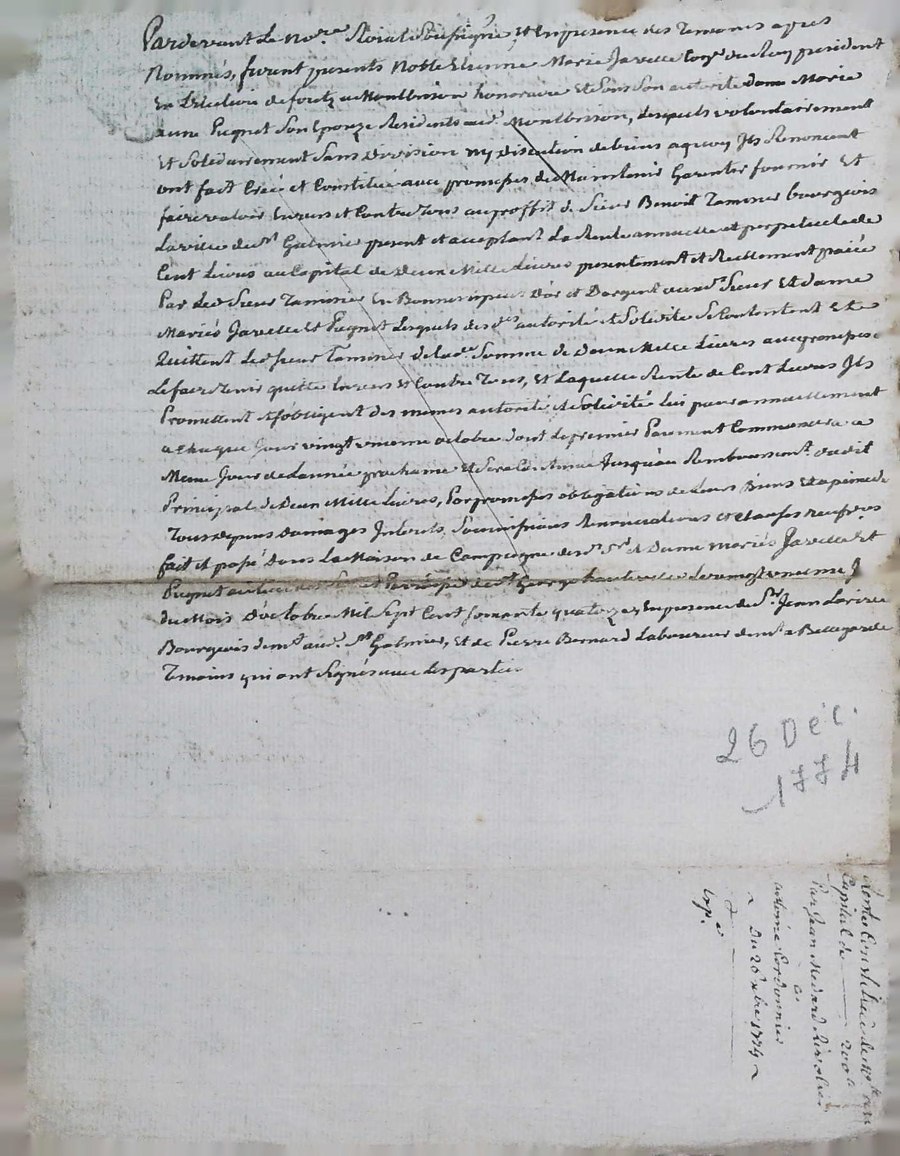 Pardevant Le No.re Roial Soussigné Et En presence des Temoins apres
Nommés, furent presents Noble Etienne Marie Javelle Con.er du Roy president
En L'Election de forêtz a Montbrison honoraire Et Sous Son autorité dame Marie
anne Puqnet Son Epouze Residents aud. Montbrison, Lesquels volontairement
Et Solidairement Sans Division ny discution de biens a quoy Ils Renoncent
ont fait Créé et Constitué avec promesses de Maintenir Garentir fournir Et
faire valoir Envers et Contre Tous au proffit de Sieur Benoit Taminer bourgeois
La ville de St Galmier present et acceptant La Rente annuelle et perpetuelle de
Cent Livres au Capital de Deux Mille Livres presentement et Reellement paiée
Par Led. Sieur Taminer En Bonnes especes D'or et D'argent auxd. Sieur Et Dame
Mariés Javelle Et Puqnet Lesquels des d. autorité et Solidité Se Contentent Et
Quittent Led. Sieur Taminer de lad. Somme de Deux Mille Livres avec promesses
Le faire Tenir quitte Envers Et Contre Tous, Et Laquelle Rente de Cent Livres Ils
Promettent et s'obligent des memes autorité et Solidité Lui paier annuellement
a Chaque Jour vingt unieme octobre dont Le premier Paiement Commencera a
Meme Jour de L'année prochaine Et Sera Continué Jusqu'au Remboursem.t dudit
Principal de Deux Mille Livres, Par promesses obligations de Leurs Biens Et a peine de
Tous depens Domages Interets, Soumissions Renonciations et Clauses requises
fait et passé Dans La Maison de Campagne desd. Sr. et Dame mariés Javelle et
Puqnet St George hauteville Le vingt unieme J
du Mois D'octobre Mil Sept Cent Soixante quatorze En presence de Sr. Jean
Bourgeois dem.t aud. St Galmier, Et de Pierre Bernard Laboureur dem.t a Bellegarde
Temoins qui ont Signés avec Les parties
26 Déc.
1774
Rente Constituée de au
Capital de 200
Par Jean Medard
a
antoine Cordonnier
Du 26 xbre 1774
Exp.